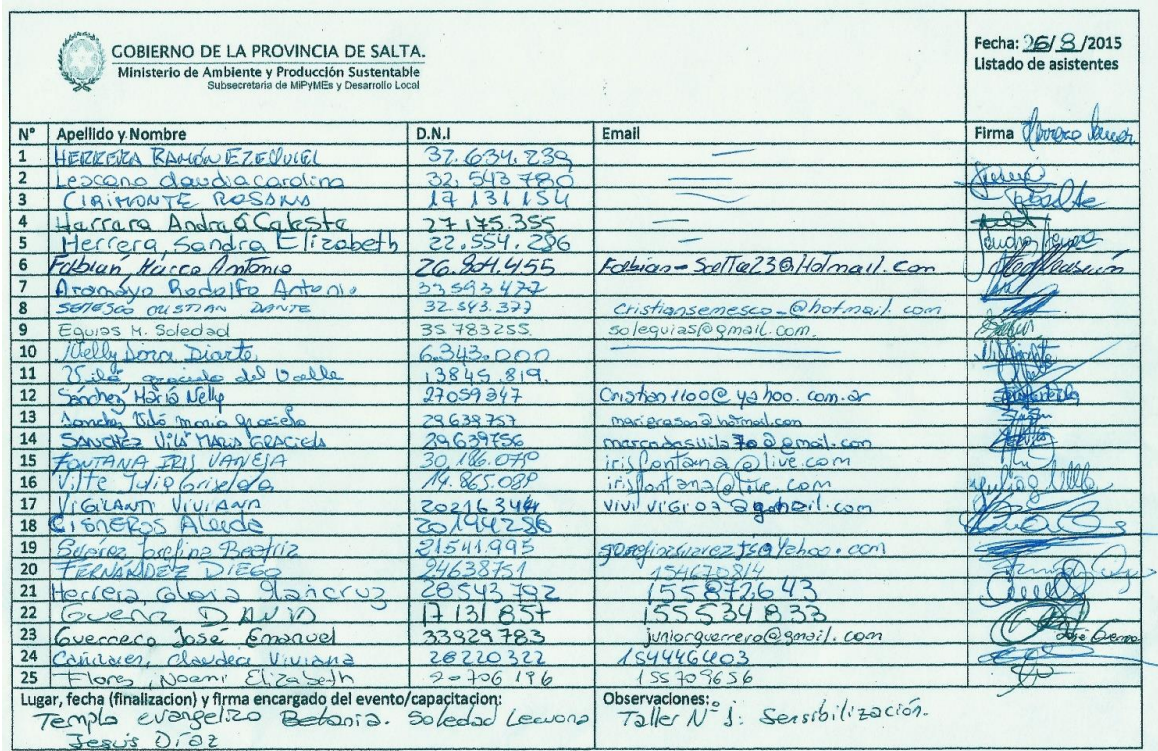 GOBIERNO DE LA PROVINCIA DE SALTA.
Ministerio de Ambiente y Producción Sustentable
Subsecretaria de MiPyMEs y Desarrollo Local
Fecha: 26/8/2015
Listado de asistentes
N° Apellido y Nombre D.N.I Email Firma
1 HERRERA RAMÓN EZEQUIEL 37.634.239 —
2 Lescano claudia carolina 32.543780 —
3 CIRIMONTE ROSSANA 17131154 —
4 Herrera Andrea Celeste 27175.355 —
5 Herrera, Sandra Elizabeth 22.554.286 —
6 Fabian, Marco Antonio 26.904.455 Fabian-Salta23@Hotmail.com
7 Aramayo Rodolfo Antonio 33593477
8 SEMESCO CRISTIAN DANTE 32.543.377 Cristiansemesco_@hotmail.com
9 Eguias M. Soledad 35783255 solequias@gmail.com.
10 Nelly Dora Diarte 6.343.000
11 Vilá graciela del Valle 13845.819.
12 Sánchez María Nelly 27059347 Cristian1100@yahoo.com.ar
13 Sanchez Vilá maria 29639757
14 SANCHEZ Vilá MARIA GRACIELA 29639756
15 FONTANA IRIS VANESA 30.186.079 irisfontana@live.com
16 Vilte Julia Griselda 14.865.089 irisfontana@live.com
17 VIGILANTI VIVIANA 20216344
18 CISNEROS Aleida 20194286
19 Suárez Josefina Beatriz 21541.995
20 FERNANDEZ DIEGO 24638751 154670814
21 Herrera, Gloria Stancruz 28543792 155872643
22 Guerra DAVID 17131857 155534833
23 Guerrero José Emanuel 33929783 juniorguerrero@gmail.com
24 Cañizares, claudia Viviana 28220322 154446403
25 Flores, Noemi Elizabeth 20706196 155709656
Lugar, fecha (finalizacion) y firma encargado del evento/capacitacion:
Templo evangelico Betania. Soledad
Jesús Díaz
Observaciones:
Taller N° 1: Sensibilización.